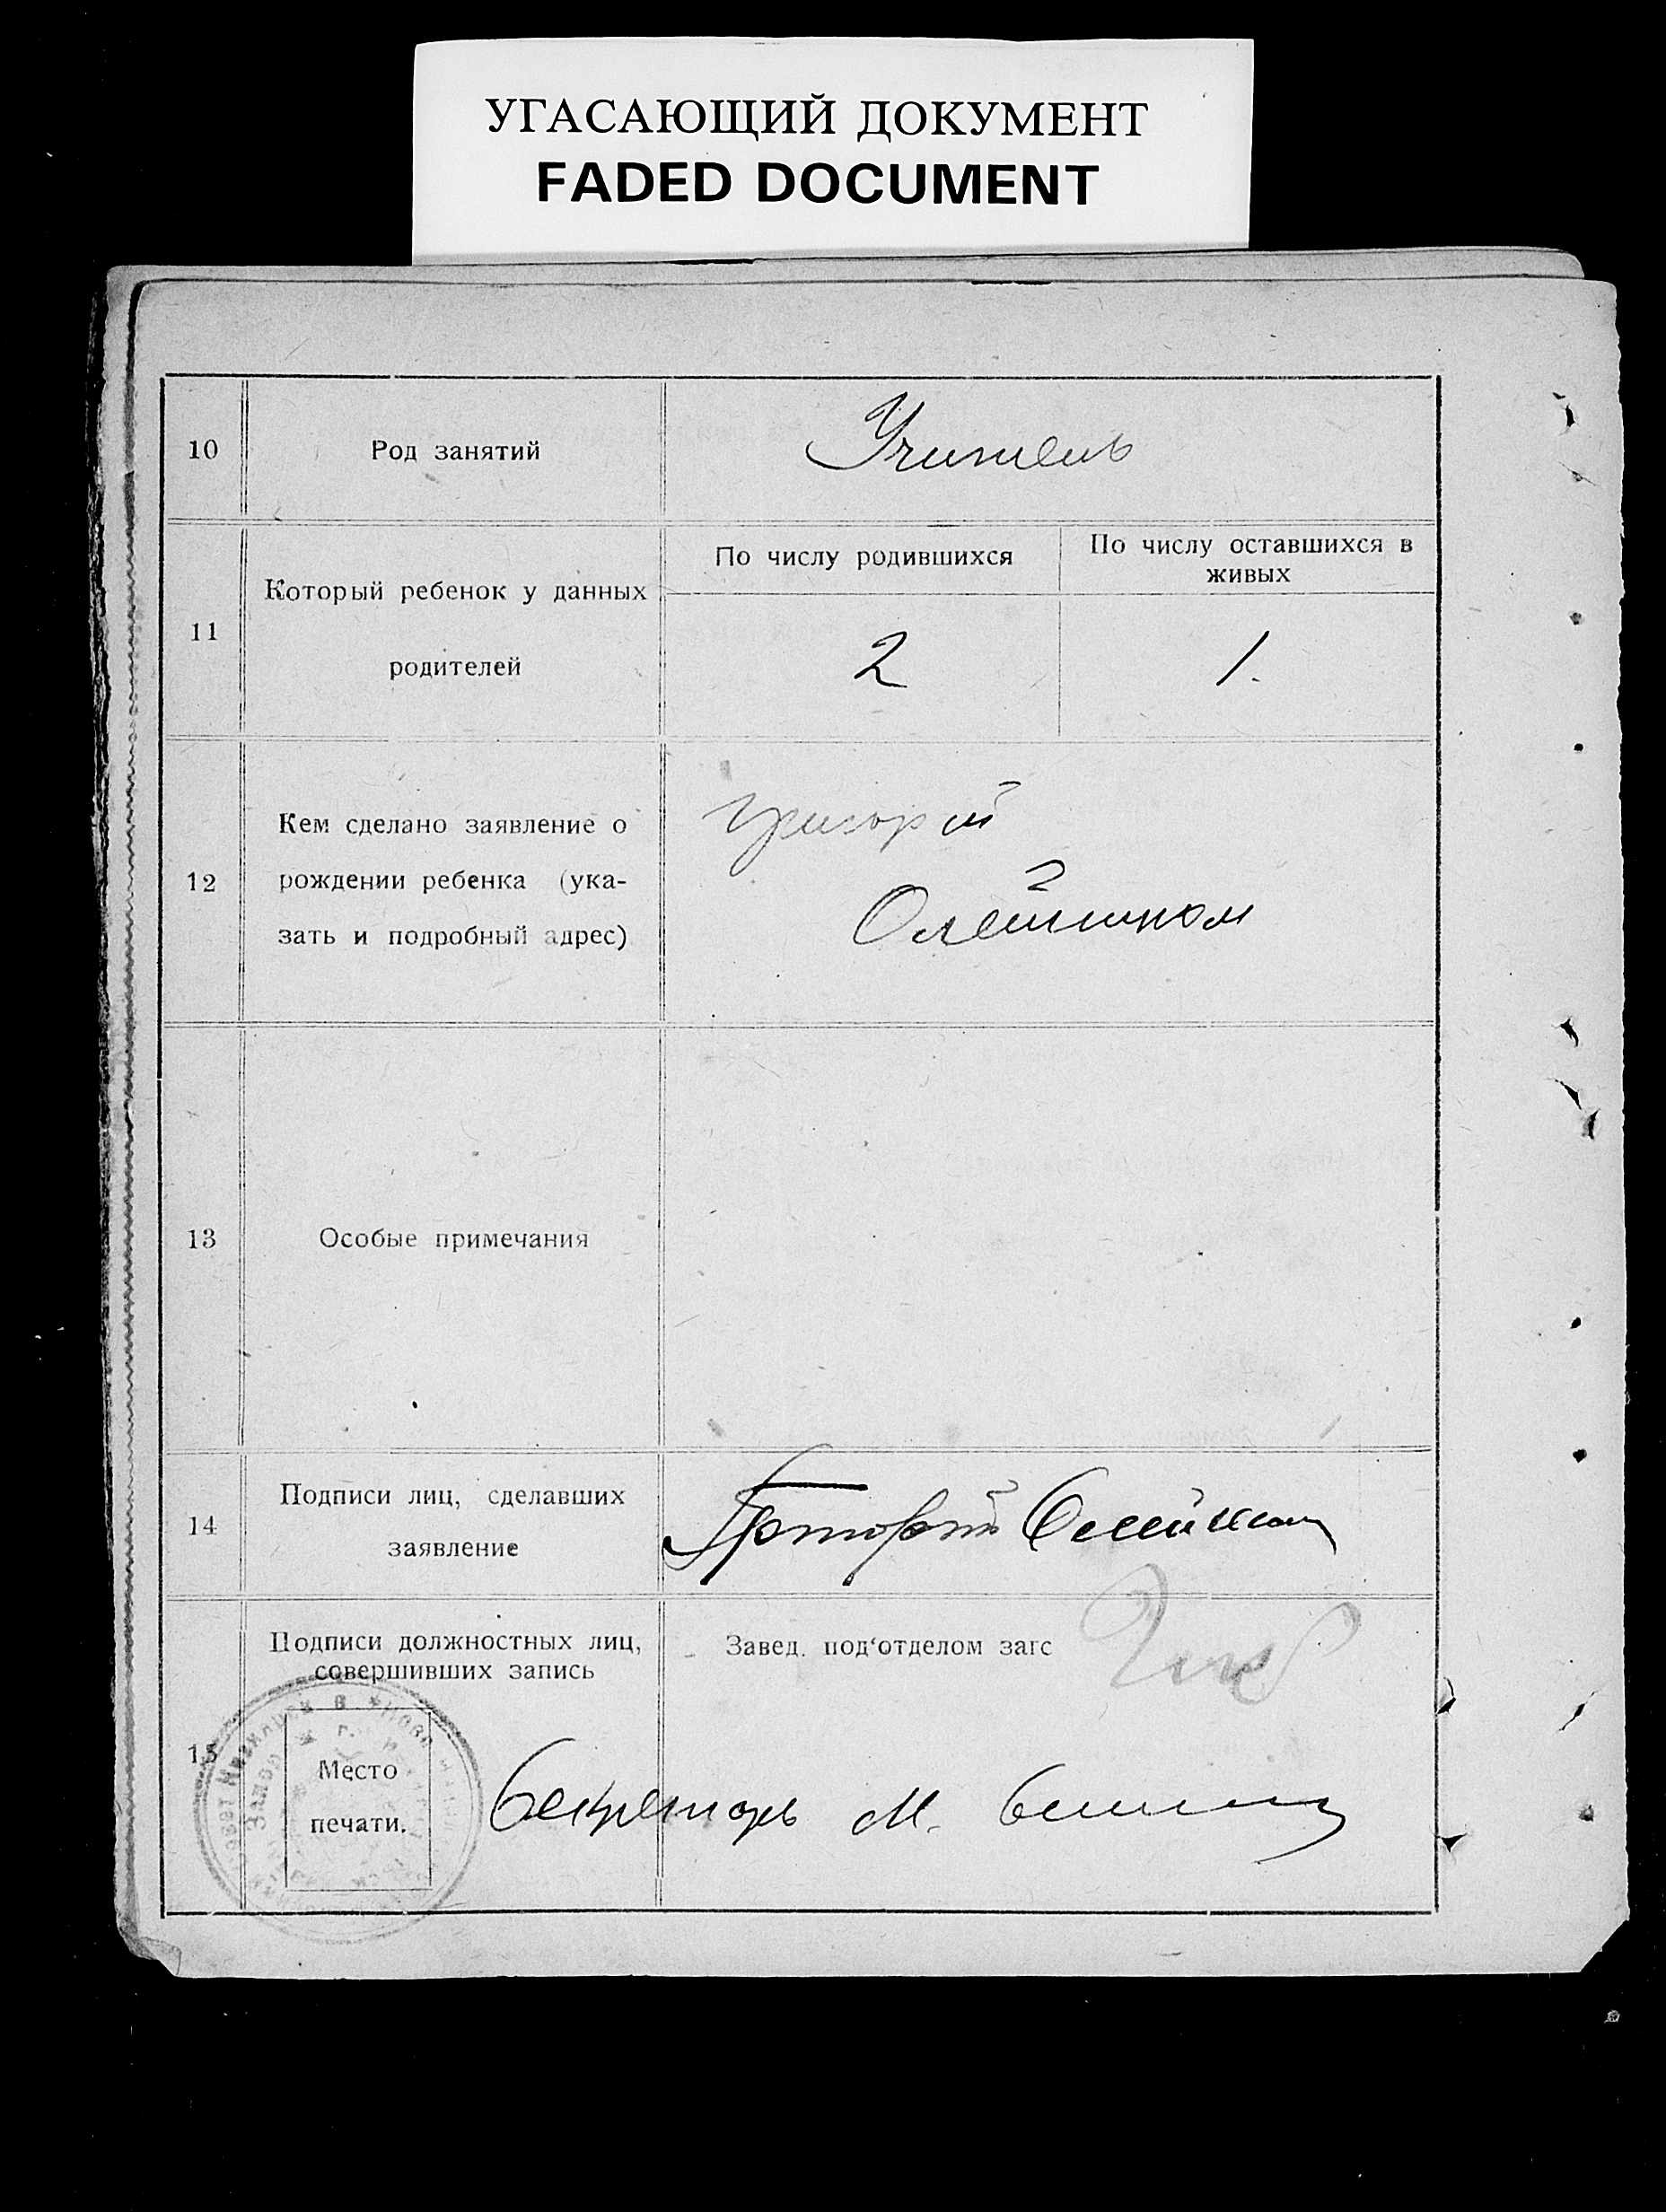 УГАСАЮЩИЙ ДОКУМЕНТ
FADED DOCUMENT
10
Род занятий
Учитель
11
Который ребенок у данных
родителей
По числу родившихся
По числу оставшихся в
живых
2
1.
12
Кем сделано заявление о
рождении ребенка (ука-
зать и подробный адрес)
Григорий
Олейником
13
Особые примечания
14
Подписи лиц, сделавших
заявление
Григорий Олейник
15
Подписи должностных лиц,
совершивших запись
Завед. под‘отделом загс
Место
печати.
Секретарь М.